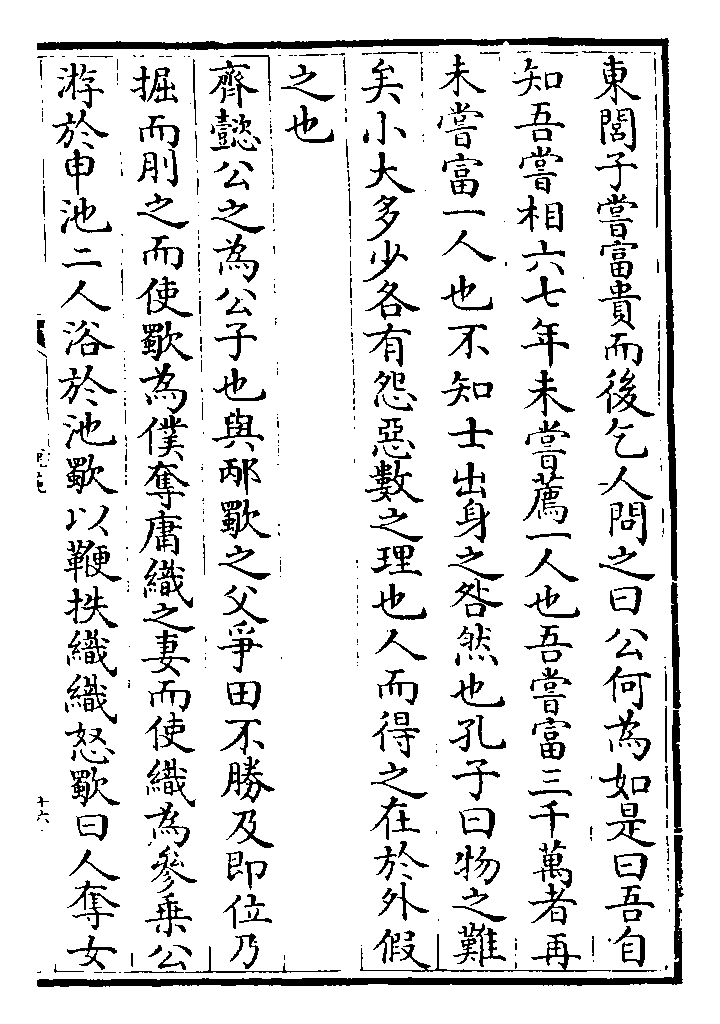 東閭子嘗富貴而後乞人問之曰公何為如是曰吾自
知吾嘗相六七年未嘗薦一人也吾嘗富三千萬者再
未嘗富一人也不知士出身之咎然也孔子曰物之難
矣小大多少各有怨惡數之理也人而得之在於外假
之也
齊懿公之為公子也與邴歜之父爭田不勝及即位乃
掘而刖之而使歜為僕奪庸織之妻而使織為參乗公
游於申池二人浴於池歜以鞭抶織織怒歜曰人奪女
十六